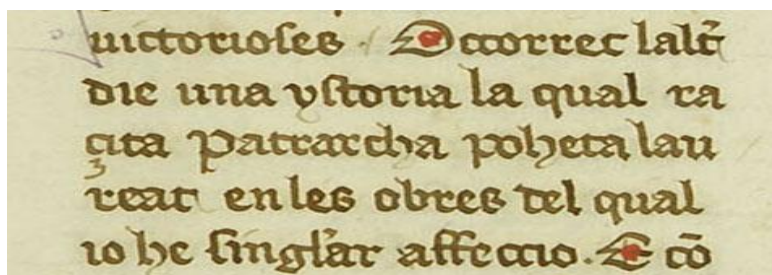 uictorioses . Occorrec lalt̃
die una ystoria la qual ra
çita Patrarcha poheta lau
reat en les obres del qual
io he singl̃ar affeccio . E cõ